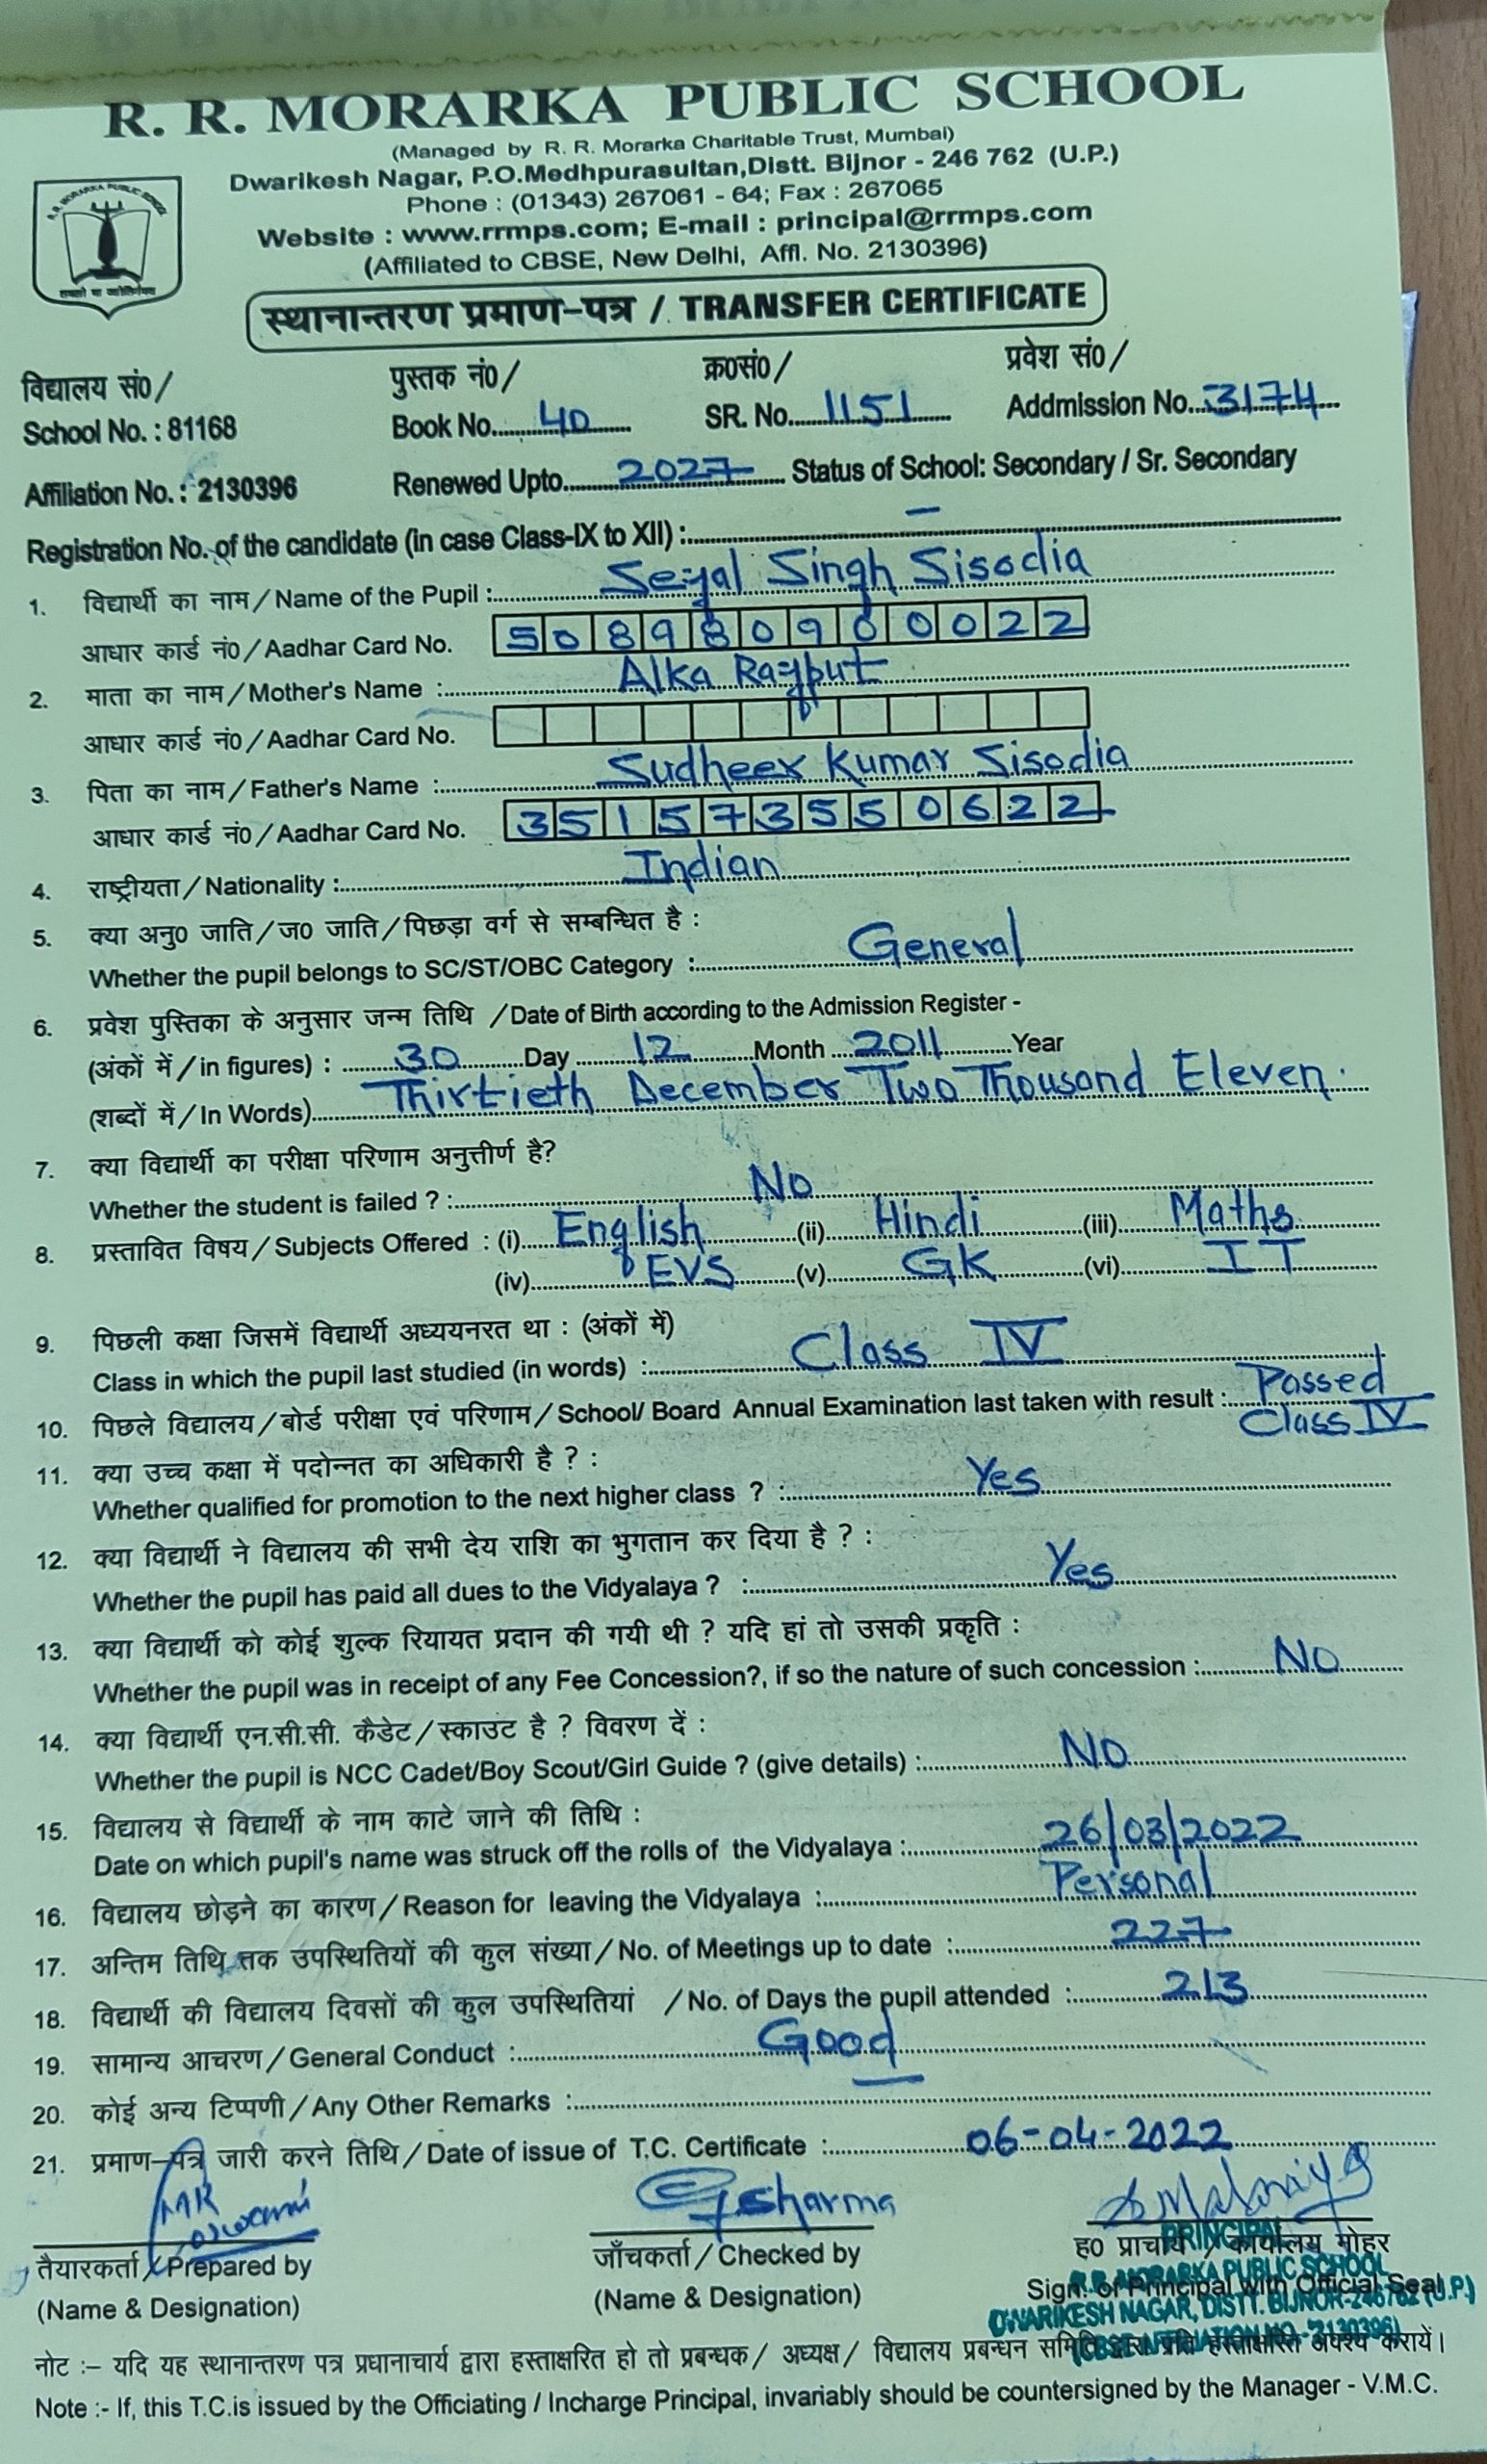 R. R. MORARKA PUBLIC SCHOOL
(Managed by R. R. Morarka Charitable Trust, Mumbai)
Dwarikesh Nagar, P.O.Medhpurasultan,Distt. Bijnor - 246 762 (U.P.)
Phone : (01343) 267061 - 64; Fax : 267065
Website : www.rrmps.com; E-mail : principal@rrmps.com
(Affiliated to CBSE, New Delhi, Affl. No. 2130396)
R.R. MORARKA PUBLIC SCHOOL
स्थानान्तरण प्रमाण-पत्र / TRANSFER CERTIFICATE
विद्यालय सं0/ पुस्तक नं0/ क्र0सं0/ प्रवेश सं0/
School No. : 81168 Book No. 40 SR. No. 1151 Addmission No. 3174
Affiliation No. : 2130396 Renewed Upto 2027 Status of School: Secondary / Sr. Secondary
Registration No. of the candidate (in case Class-IX to XII) : –
1. विद्यार्थी का नाम/Name of the Pupil : Sejal Singh Sisodia
आधार कार्ड नं0/Aadhar Card No. 508980900022
2. माता का नाम/Mother's Name : Alka Rajput
आधार कार्ड नं0/Aadhar Card No.
3. पिता का नाम/Father's Name : Sudheer Kumar Sisodia
आधार कार्ड नं0/Aadhar Card No. 351573550622
4. राष्ट्रीयता/Nationality : Indian
5. क्या अनु0 जाति/ज0 जाति/पिछड़ा वर्ग से सम्बन्धित है :
Whether the pupil belongs to SC/ST/OBC Category : General
6. प्रवेश पुस्तिका के अनुसार जन्म तिथि /Date of Birth according to the Admission Register -
(अंकों में/in figures) : 30 Day 12 Month 2011 Year
(शब्दों में/In Words) Thirtieth December Two Thousand Eleven.
7. क्या विद्यार्थी का परीक्षा परिणाम अनुत्तीर्ण है?
Whether the student is failed ? : No
8. प्रस्तावित विषय/Subjects Offered : (i) English (ii) Hindi (iii) Maths
(iv) EVS (v) GK (vi) IT
9. पिछली कक्षा जिसमें विद्यार्थी अध्ययनरत था : (अंकों में)
Class in which the pupil last studied (in words) : Class IV
10. पिछले विद्यालय/बोर्ड परीक्षा एवं परिणाम/School/ Board Annual Examination last taken with result : Passed
Class IV
11. क्या उच्च कक्षा में पदोन्नत का अधिकारी है ? :
Whether qualified for promotion to the next higher class ? : Yes
12. क्या विद्यार्थी ने विद्यालय की सभी देय राशि का भुगतान कर दिया है ? :
Whether the pupil has paid all dues to the Vidyalaya ? : Yes
13. क्या विद्यार्थी को कोई शुल्क रियायत प्रदान की गयी थी ? यदि हां तो उसकी प्रकृति :
Whether the pupil was in receipt of any Fee Concession?, if so the nature of such concession : No
14. क्या विद्यार्थी एन.सी.सी. कैडेट/स्काउट है ? विवरण दें :
Whether the pupil is NCC Cadet/Boy Scout/Girl Guide ? (give details) : No
15. विद्यालय से विद्यार्थी के नाम काटे जाने की तिथि :
Date on which pupil's name was struck off the rolls of the Vidyalaya : 26/03/2022
16. विद्यालय छोड़ने का कारण/Reason for leaving the Vidyalaya : Personal
17. अन्तिम तिथि तक उपस्थितियों की कुल संख्या/No. of Meetings up to date : 227
18. विद्यार्थी की विद्यालय दिवसों की कुल उपस्थितियां /No. of Days the pupil attended : 213
19. सामान्य आचरण/General Conduct : Good
20. कोई अन्य टिप्पणी/Any Other Remarks :
21. प्रमाण-पत्र जारी करने तिथि/Date of issue of T.C. Certificate : 06-04-2022
Sharma
तैयारकर्ता/Prepared by जाँचकर्ता/Checked by ह0 प्राचार्य / कार्यालय मोहर
(Name & Designation) (Name & Designation) Sign. of Principal with Official Seal
PRINCIPAL
R.R. MORARKA PUBLIC SCHOOL
DWARIKESH NAGAR, DISTT. BIJNOR-246762 (U.P.)
(CBSE AFFILIATION NO.-2130396)
नोट :– यदि यह स्थानान्तरण पत्र प्रधानाचार्य द्वारा हस्ताक्षरित हो तो प्रबन्धक/ अध्यक्ष/ विद्यालय प्रबन्धन समिति द्वारा प्रति हस्ताक्षरित अवश्य करायें।
Note :- If, this T.C.is issued by the Officiating / Incharge Principal, invariably should be countersigned by the Manager - V.M.C.